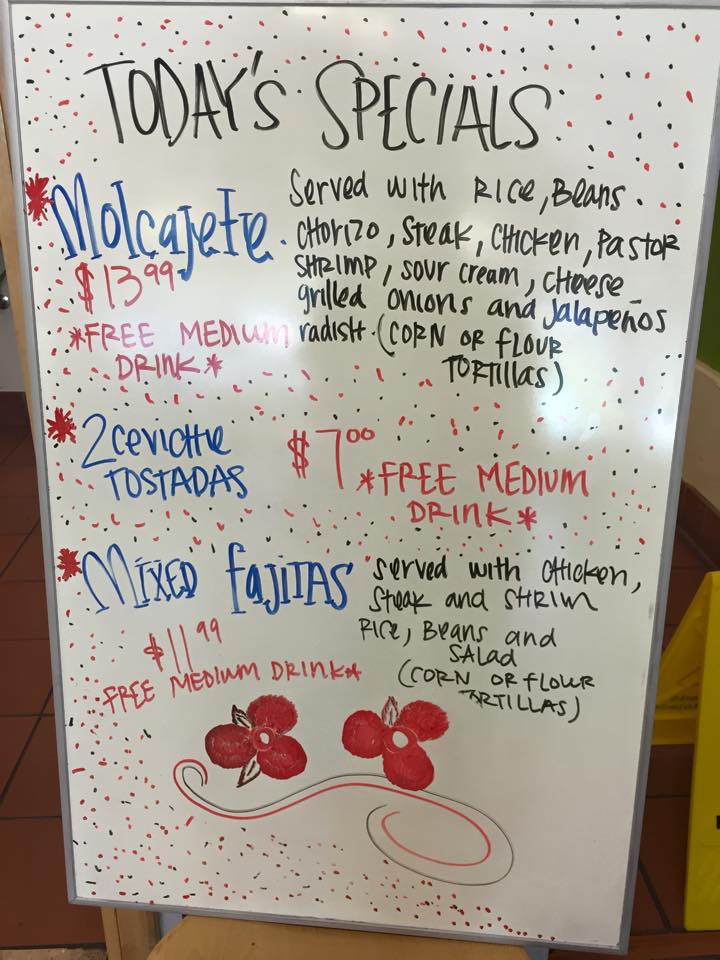 TODAY'S SPECIALS
*Molcajete.
$13.99
*FREE MEDIUM
DRINK*
Served with RICE, Beans.
CHORIZO, Steak, CHICKEN, Pastor
SHRIMP, sour cream, CHeese
grilled onions and Jalapeños
radish. (CORN OR flOUR
TORTIllas)
*2 ceviche
TOSTADAS
$7.00
*FREE MEDIUM
DRINK*
*MIXED fajITAS
$11.99
FREE MEDIUM DRINK*
served with CHicken,
Steak and SHRIM
RICE, Beans and
SALAD
(CORN OR flOUR
TORTILLAS)